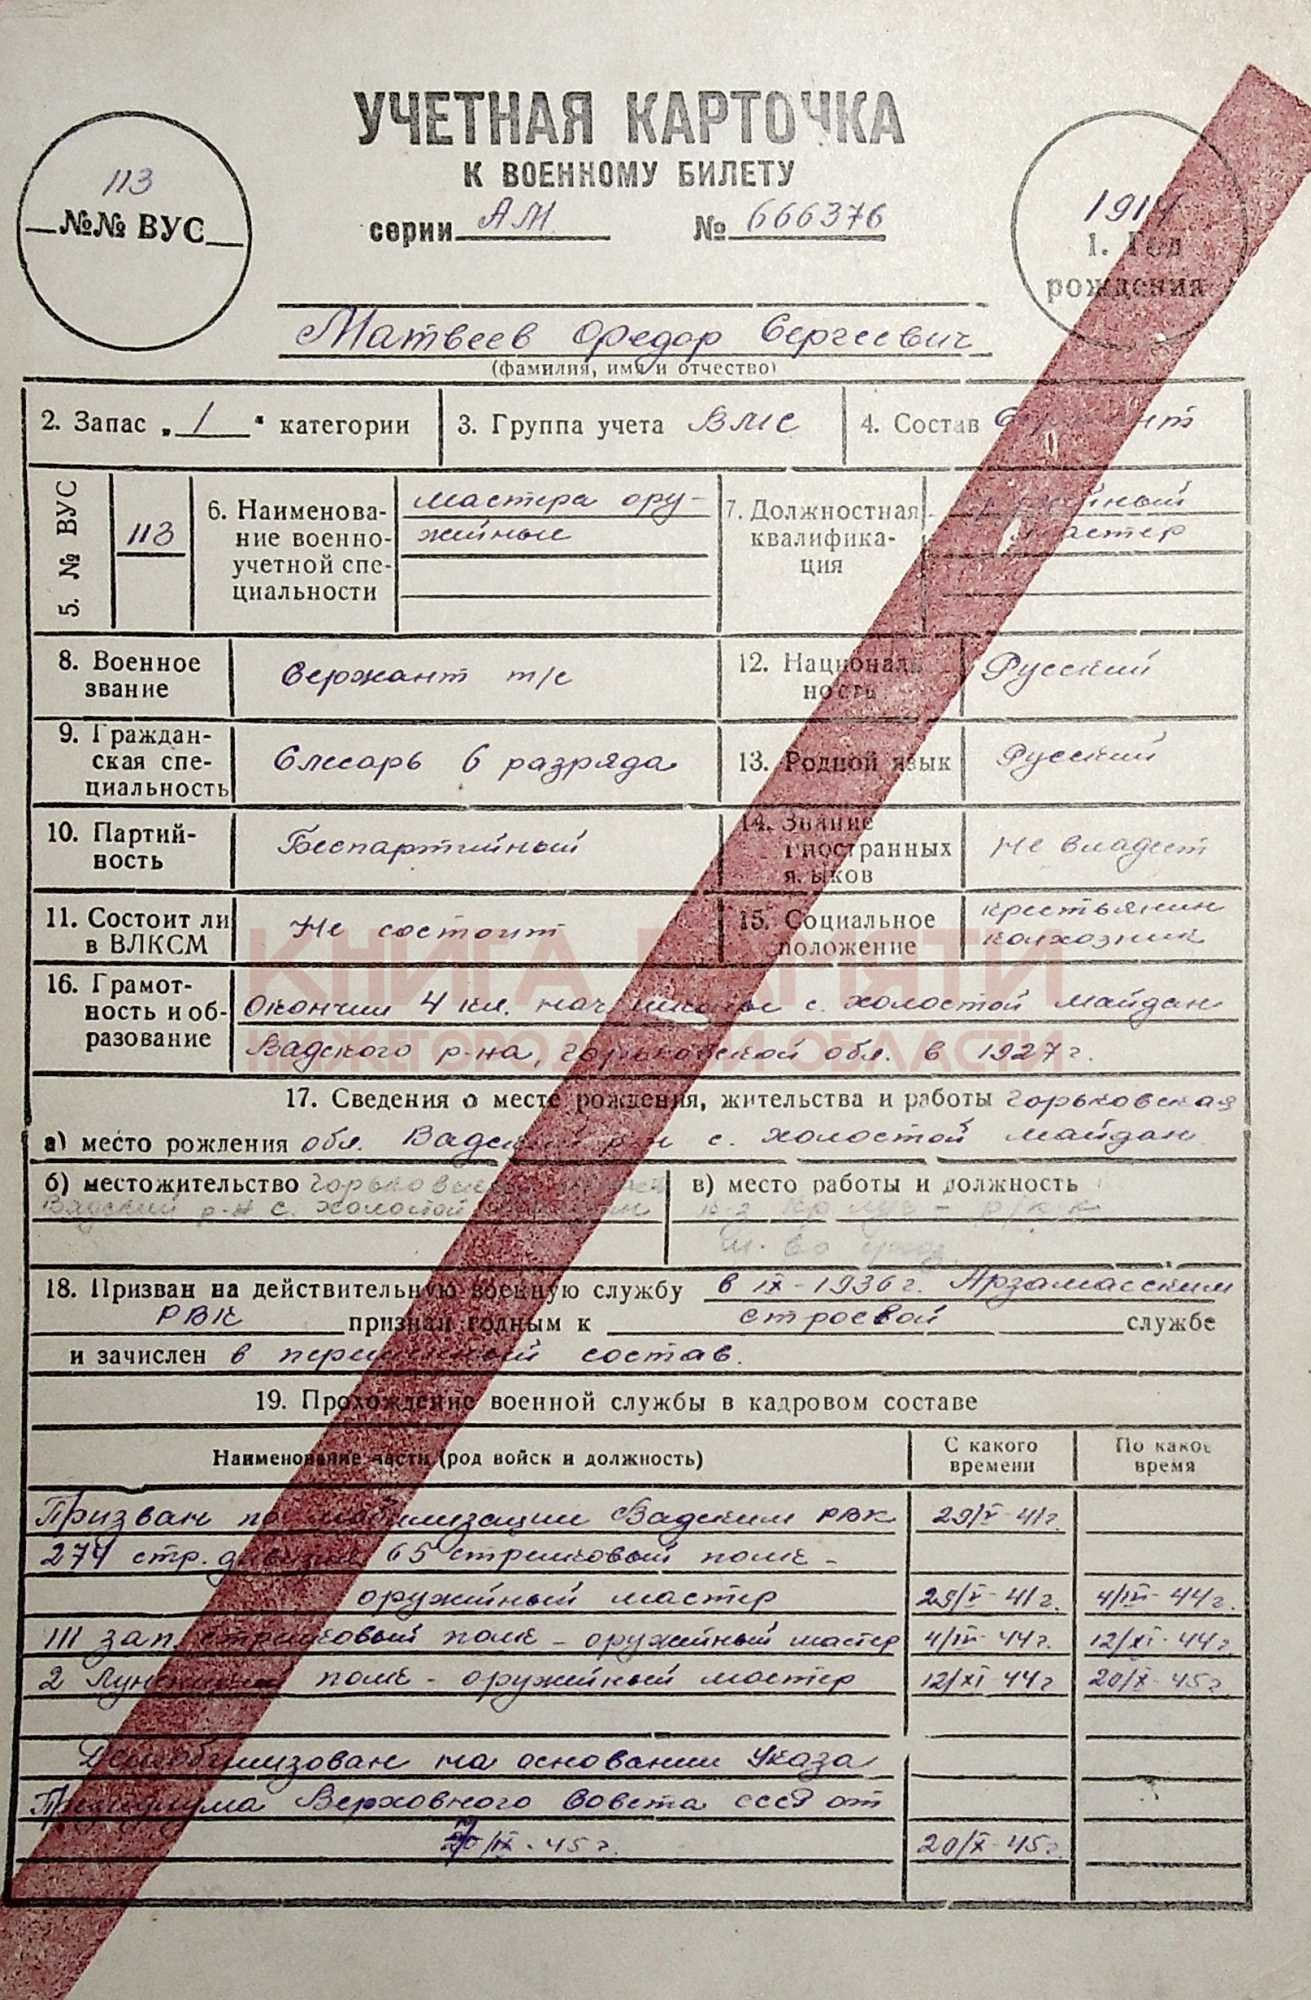 УЧЕТНАЯ КАРТОЧКА
К ВОЕННОМУ БИЛЕТУ
серии АМ № 666376
113
№№ ВУС
1. Год
рождения
Матвеев Федор Сергеевич
(фамилия, имя и отчество)
2. Запас „1“ категории
3. Группа учета ВМС
4. Состав Сержант
5. № ВУС
113
6. Наименова-
ние военно-
учетной спе-
циальности
мастера ору-
жейные
7. Должностная
квалифика-
ция
оружейный
мастер
8. Военное
звание
Сержант т/с
12. Националь
ность
Русский
9. Граждан-
ская спе-
циальность
Слесарь 6 разряда
13. Родной язык
Русский
10. Партий-
ность
Беспартийный
14. Знание
иностранных
языков
Не владеет
11. Состоит ли
в ВЛКСМ
Не состоит
15. Социальное
положение
крестьянин
колхозник
16. Грамот-
ность и об-
разование
Окончил 4 кл. нач. школы с. Холостой Майдан
Вадского р-на, Горьковской обл. в 1927 г.
КНИГА ПАМЯТИ
НИЖЕГОРОДСКОЙ ОБЛАСТИ
17. Сведения о месте рождения, жительства и работы Горьковская
а) место рождения обл. Вадский р-н с. Холостой Майдан
б) местожительство Горьковская
Вадский р-н с. Холостой Майдан
в) место работы и должность
18. Призван на действительную военную службу в IX-1936 г. Арзамасским
РВК признан годным к строевой службе
и зачислен в переменный состав.
19. Прохождение военной службы в кадровом составе
Наименование части (род войск и должность)
С какого
времени
По какое
время
Призван по мобилизации Вадским РВК 29/V-41г.
274 стр. дивизия 65 стрелковый полк -
оружейный мастер 29/V-41г. 4/III-44г.
III зап. стрелковый полк - оружейный мастер 4/III-44г. 12/XI-44г.
2 полк - оружейный мастер 12/XI 44г 20/X-45г.
Демобилизован на основании Указа
Президиума Верховного Совета СССР от
/IX-45г. 20/X-45г.